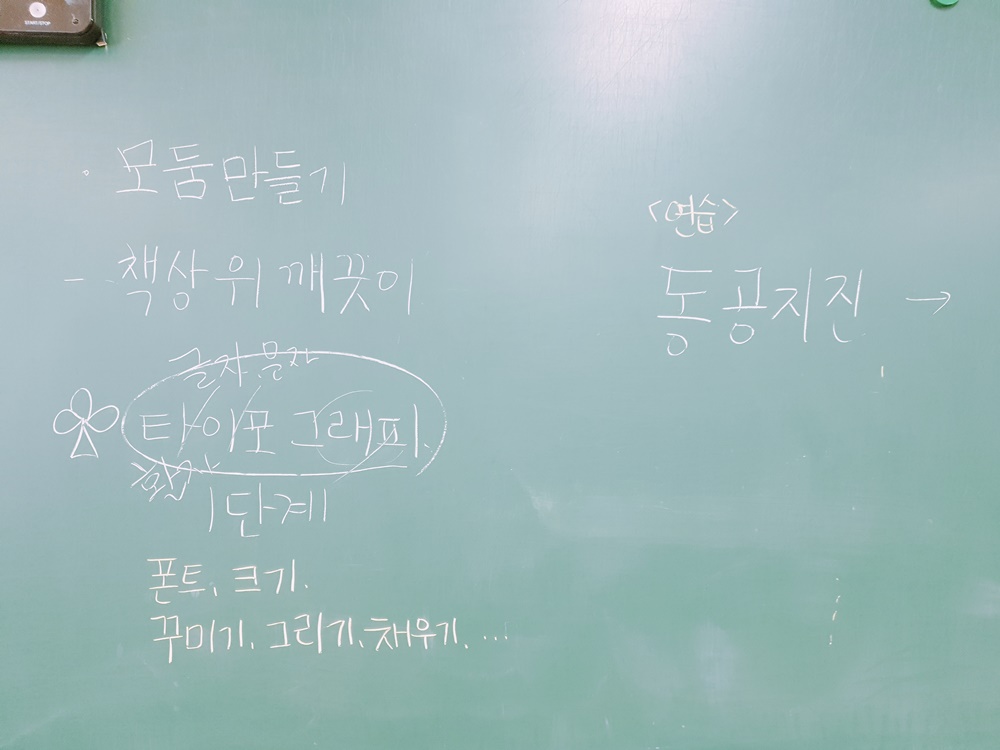 · 모둠만들기
- 책상 위 깨끗이
글자. 문자
타이포그래피.
1단계
폰트, 크기.
꾸미기, 그리기, 채우기, ...
<연습>
동공지진 →